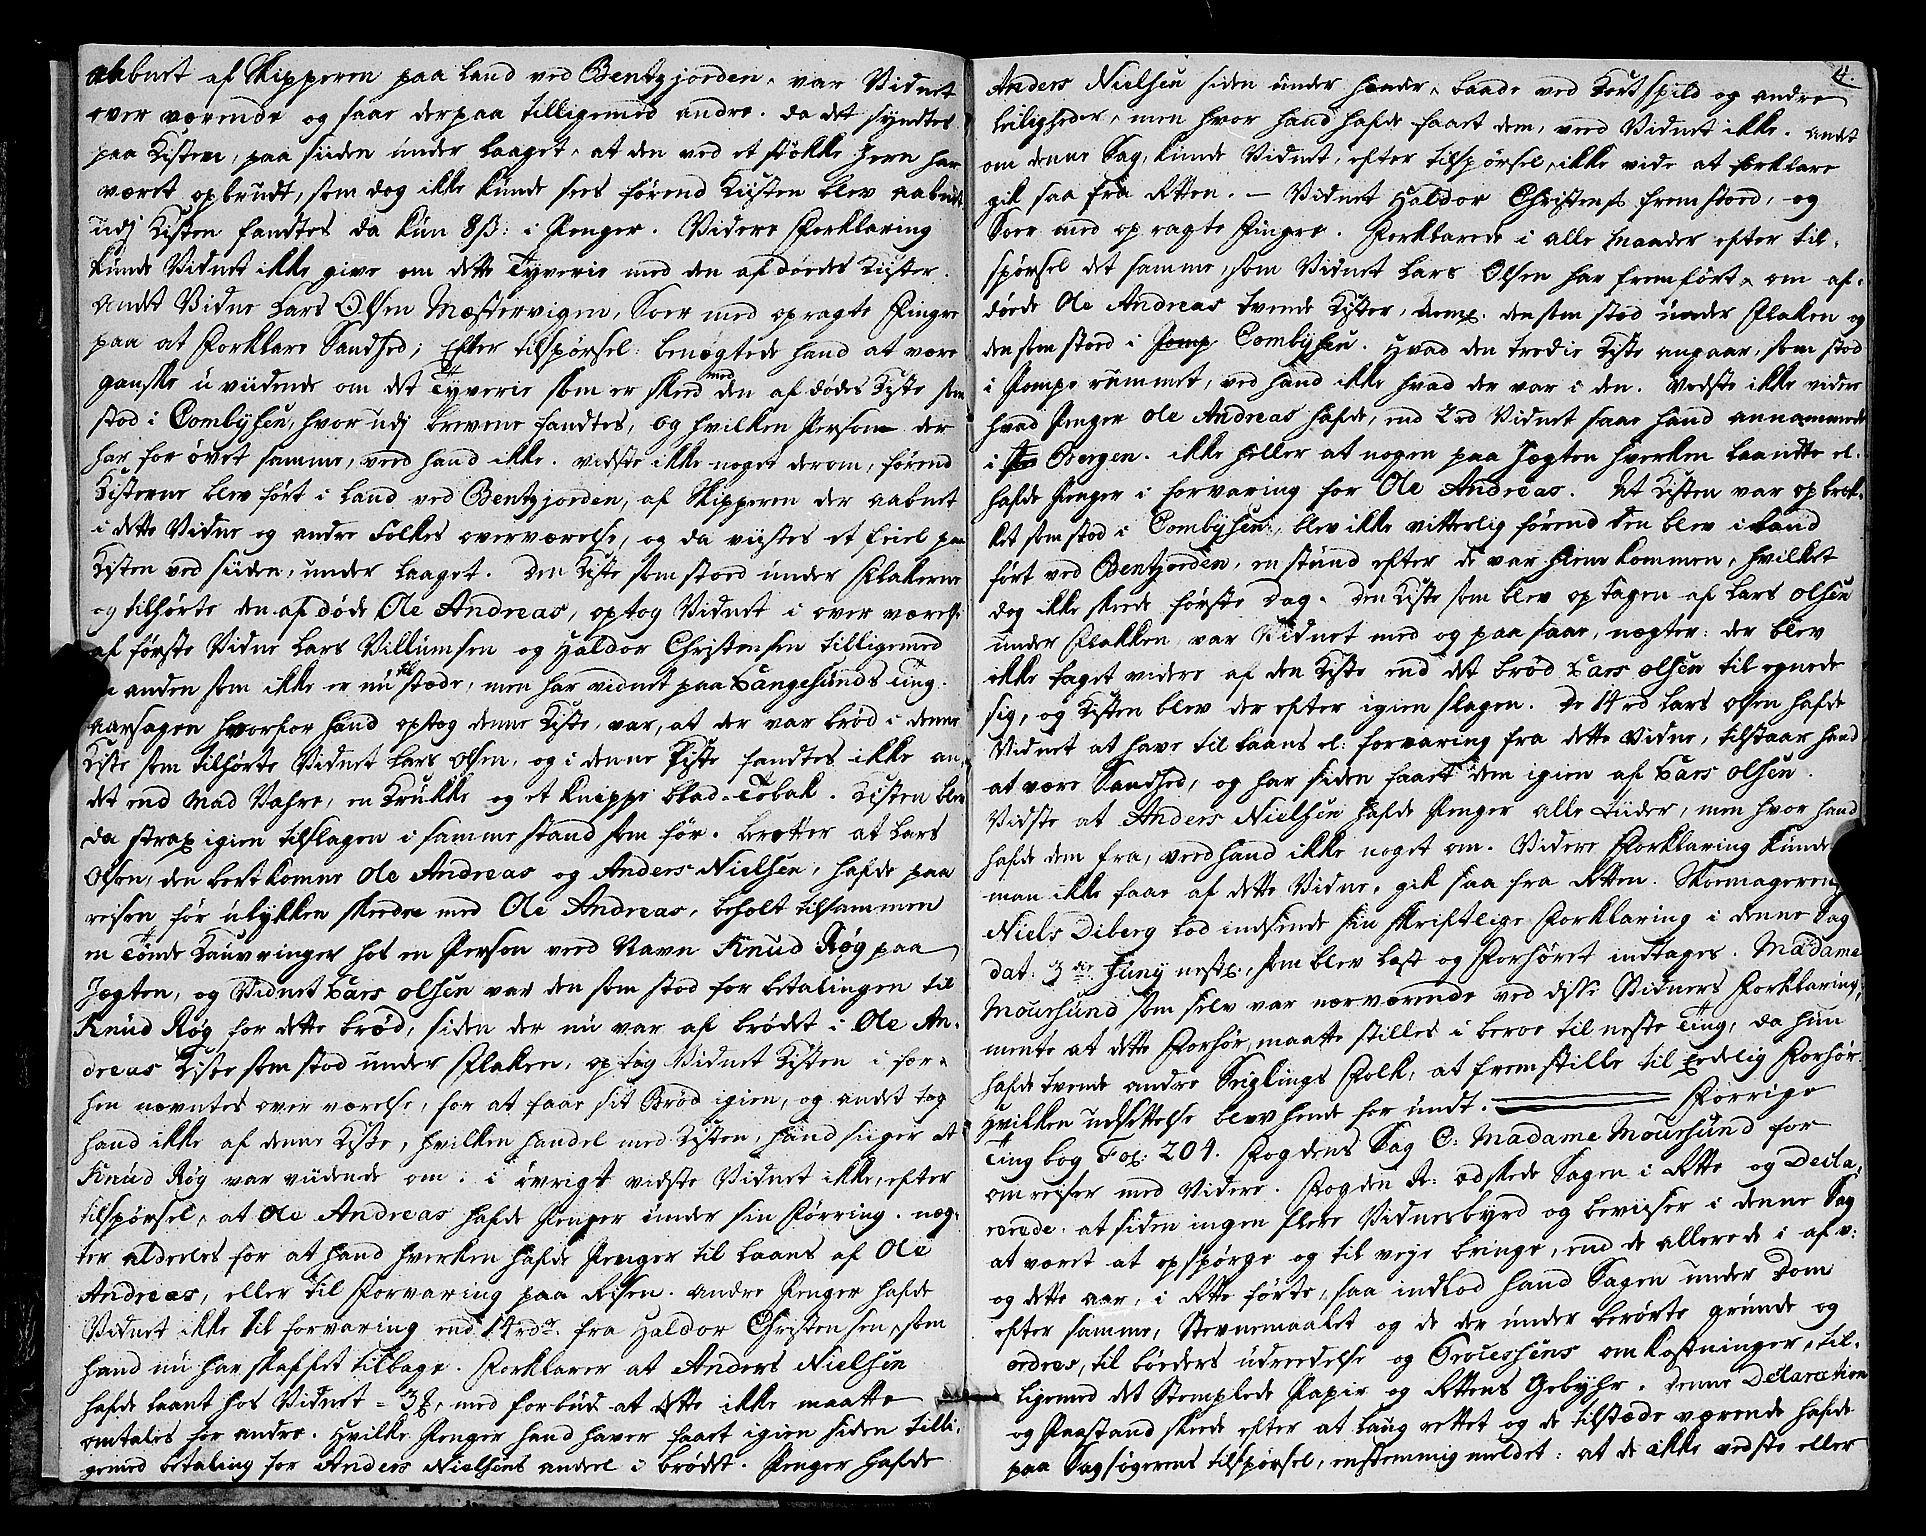 aabnet af Skipperen paa Land ved Bentzjorden, var Vidnet
over værende og saae derpaa tilligemed andre. da det syndtes
paa Kisten, paa siiden under laaget, at den ved et støkke Jern har
været opbrudt, som dog ikke kunde sees førend Kiisten blev aabnet
udj Kisten fandtes da kun 8ß: i Penger. Videre Forklaring
kunde Vidnet ikke give om dette Tyverie med den afdødes Kister.
Andet Vidne Lars Olsen Mæstervigen, Soer med opragte Fingre
paa at Forklare Sandhed; Efter tilspørsel: benægtede hand at være
ganske uviidende om det Tyverie som er skeed med den afdødes Kiste som
stod i Combysen, hvorudj brevene fandtes, og hvilken Person der
har forøvet samme, veed hand ikke. vidste ikke noget derom, førend
Kisterne blev ført i Land ved Bentzjorden, af Skipperen der aabnet
i dette Vidne og andre Folkes overværelse, og da viistes et feiel paa
Kisten ved siiden, under laaget. Den Kiste som stoed under Flakerne
og tilhørte den afdøde Ole Andreas, optog Vidnet i over værelse
af første Vidne Lars Villumsen og Haldor Christensen tilligemed
en anden som ikke er nu tilstæde, men har vidnet paa Langesunds Ting.
Aarsagen hvorfor hand optog denne Kiste, var, at der var brød i denne
Kiste som tilhørte Vidnet Lars Olsen, og i denne Kiste fandtes ikke an-
det end Mad Vahre, en Krukke og et knippe blad-Tobak. Kisten blev
da strax igien tilslagen i samme stand som før. beretter at Lars
Olsen, den bortkomne Ole Andreas og Anders Nielsen, hafde paa
reisen før ulykken skeedde med Ole Andreas, beholt tilsammen
en Tønde Kauvringer hos en Person ved Navn Knud Røg paa
Jægten, og Vidnet Lars Olsen var den som stod for betalingen til
Knud Røg for dette brød, siden der nu var af brødet i Ole An-
dreas Kiste som stod under Flaken, optog Vidnet Kisten i for-
hen nævntes overværelse, for at faae sit Brød igien, og andet tog
hand ikke af denne Kiste, hvilken handel med Kisten, hand siiger at
Knud Røg var viidende om: i øvrigt vidste Vidnet ikke, efter
tilspørsel, at Ole Andreas hafde Penger under sin Førring. næg-
ter aldeeles for at hand hverken hafde Penger til laans af Ole
Andreas, eller til Forvaring paa Reisen. andre Penger hafde
Vidnet ikke til forvaring end 14 rdr. fra Haldor Christensen, som
hand nu har skaffet tilbage. Forklarer at Anders Nielsen
hafde laant hos Vidnet 3ß, med forbud at dette ikke maatte
omtales for andre. Hvilke Penger hand haver faaet igien siden tilli-
gemed betaling for Anders Nielsens andeel i brødet. Penger hafde
4.
Anders Nielsen siden under hænder, baade ved Kortspild og andre
leiligheder, men hvor hand hafde faaet dem, veed Vidnet ikke. andet
om denne Sag, kunde Vidnet, efter tilspørsel, ikke vide at forklare
gik saa fra Retten. – Vidnet Haldor Christens: fremstoed, og
Soer med opragte Fingre. Forklarede i alle maader efter til-
spørsel det samme, som Vidnet Lars Olsen har fremført, om af-
døde Ole Andreas tvende Kister, nemp. den som stod under Flaken og
den som stoed i Combysen. Hvad den tredie Kiste angaar, som stod
i Pompe rummet, ved hand ikke hvad der var i den. vidste ikke videre
hvad Penger Ole Andreas hafde, end 2rd Vidnet saae hand annammede
i Bergen. ikke heller at nogen paa Jægten hverken laandte el.
hafde Penger i forvaring for Ole Andreas. At Kisten var opbræk-
ket som stod i Combysen, blev ikke vitterlig førend den blev i land
ført ved Bentzjorden, en stund efter de var hiem kommen, hvilket
dog ikke skede første Dag. Den Kiste som blev optagen af Lars Olsen
under Flakken, var Vidnet med og paa saae, nægter: der blev
ikke taget videre af den Kiste end det brød Lars Olsen tilegnede
sig, og Kisten blev der efter igien slagen. De 14 rd Lars Olsen hafde
Vidnet at have til laans el: forvaring fra dette Vidne, tilstaar hand
at være Sandhed, og har siden faaet dem igien af Lars Olsen.
Vidste at Anders Nielsen hafde Penger alle tiider, men hvor hand
hafde dem fra, veed hand ikke noget om. Videre Forklaring kunde
man ikke faae af dette Vidne, gik saa fra Retten. Skoemageren
Niels Diberg lod indsende sin skriftlige Forklaring i denne Sag
dat: 3die Juny nest:, som blev læst og Forhøret indtages. Madame
Moursund som selv var nærværende ved disse Vidners Forklaring,
mente at dette Forhør, maatte stilles i beroe til neste Ting, da hun
hafde tvende andre Seiglings Folk, at fremstille til Eedelig Forhør
hvilken udsættelse blev hende forundt. Forrige
Ting bog Fol: 204. Fogdens Sag C: Madame Moursund for
omreiser med Videre. Fogden A: æskede Sagen i Rette og Decla-
rerede: at siden ingen flere Vidnesbyrd og beviiser i denne Sag
at været at opspørge og til veje bringe, end de allerede i af v:
og dette aar, i Rette førte, saa indlod hand Sagen under Dom
efter samme, Stevnemaalet og de derunder berørte grunde og
ordres, til bøders udreedelse og Processens omkostninger, til-
ligemed det Stemplede Papir og Rettens Gebyhr. denne Declaration
og Paastand skede efter at Laugrettet og de tilstæde værende hafde
paa Sagsøgerens tilspørsel, enstemmig meldet: at de ikke vedste eller